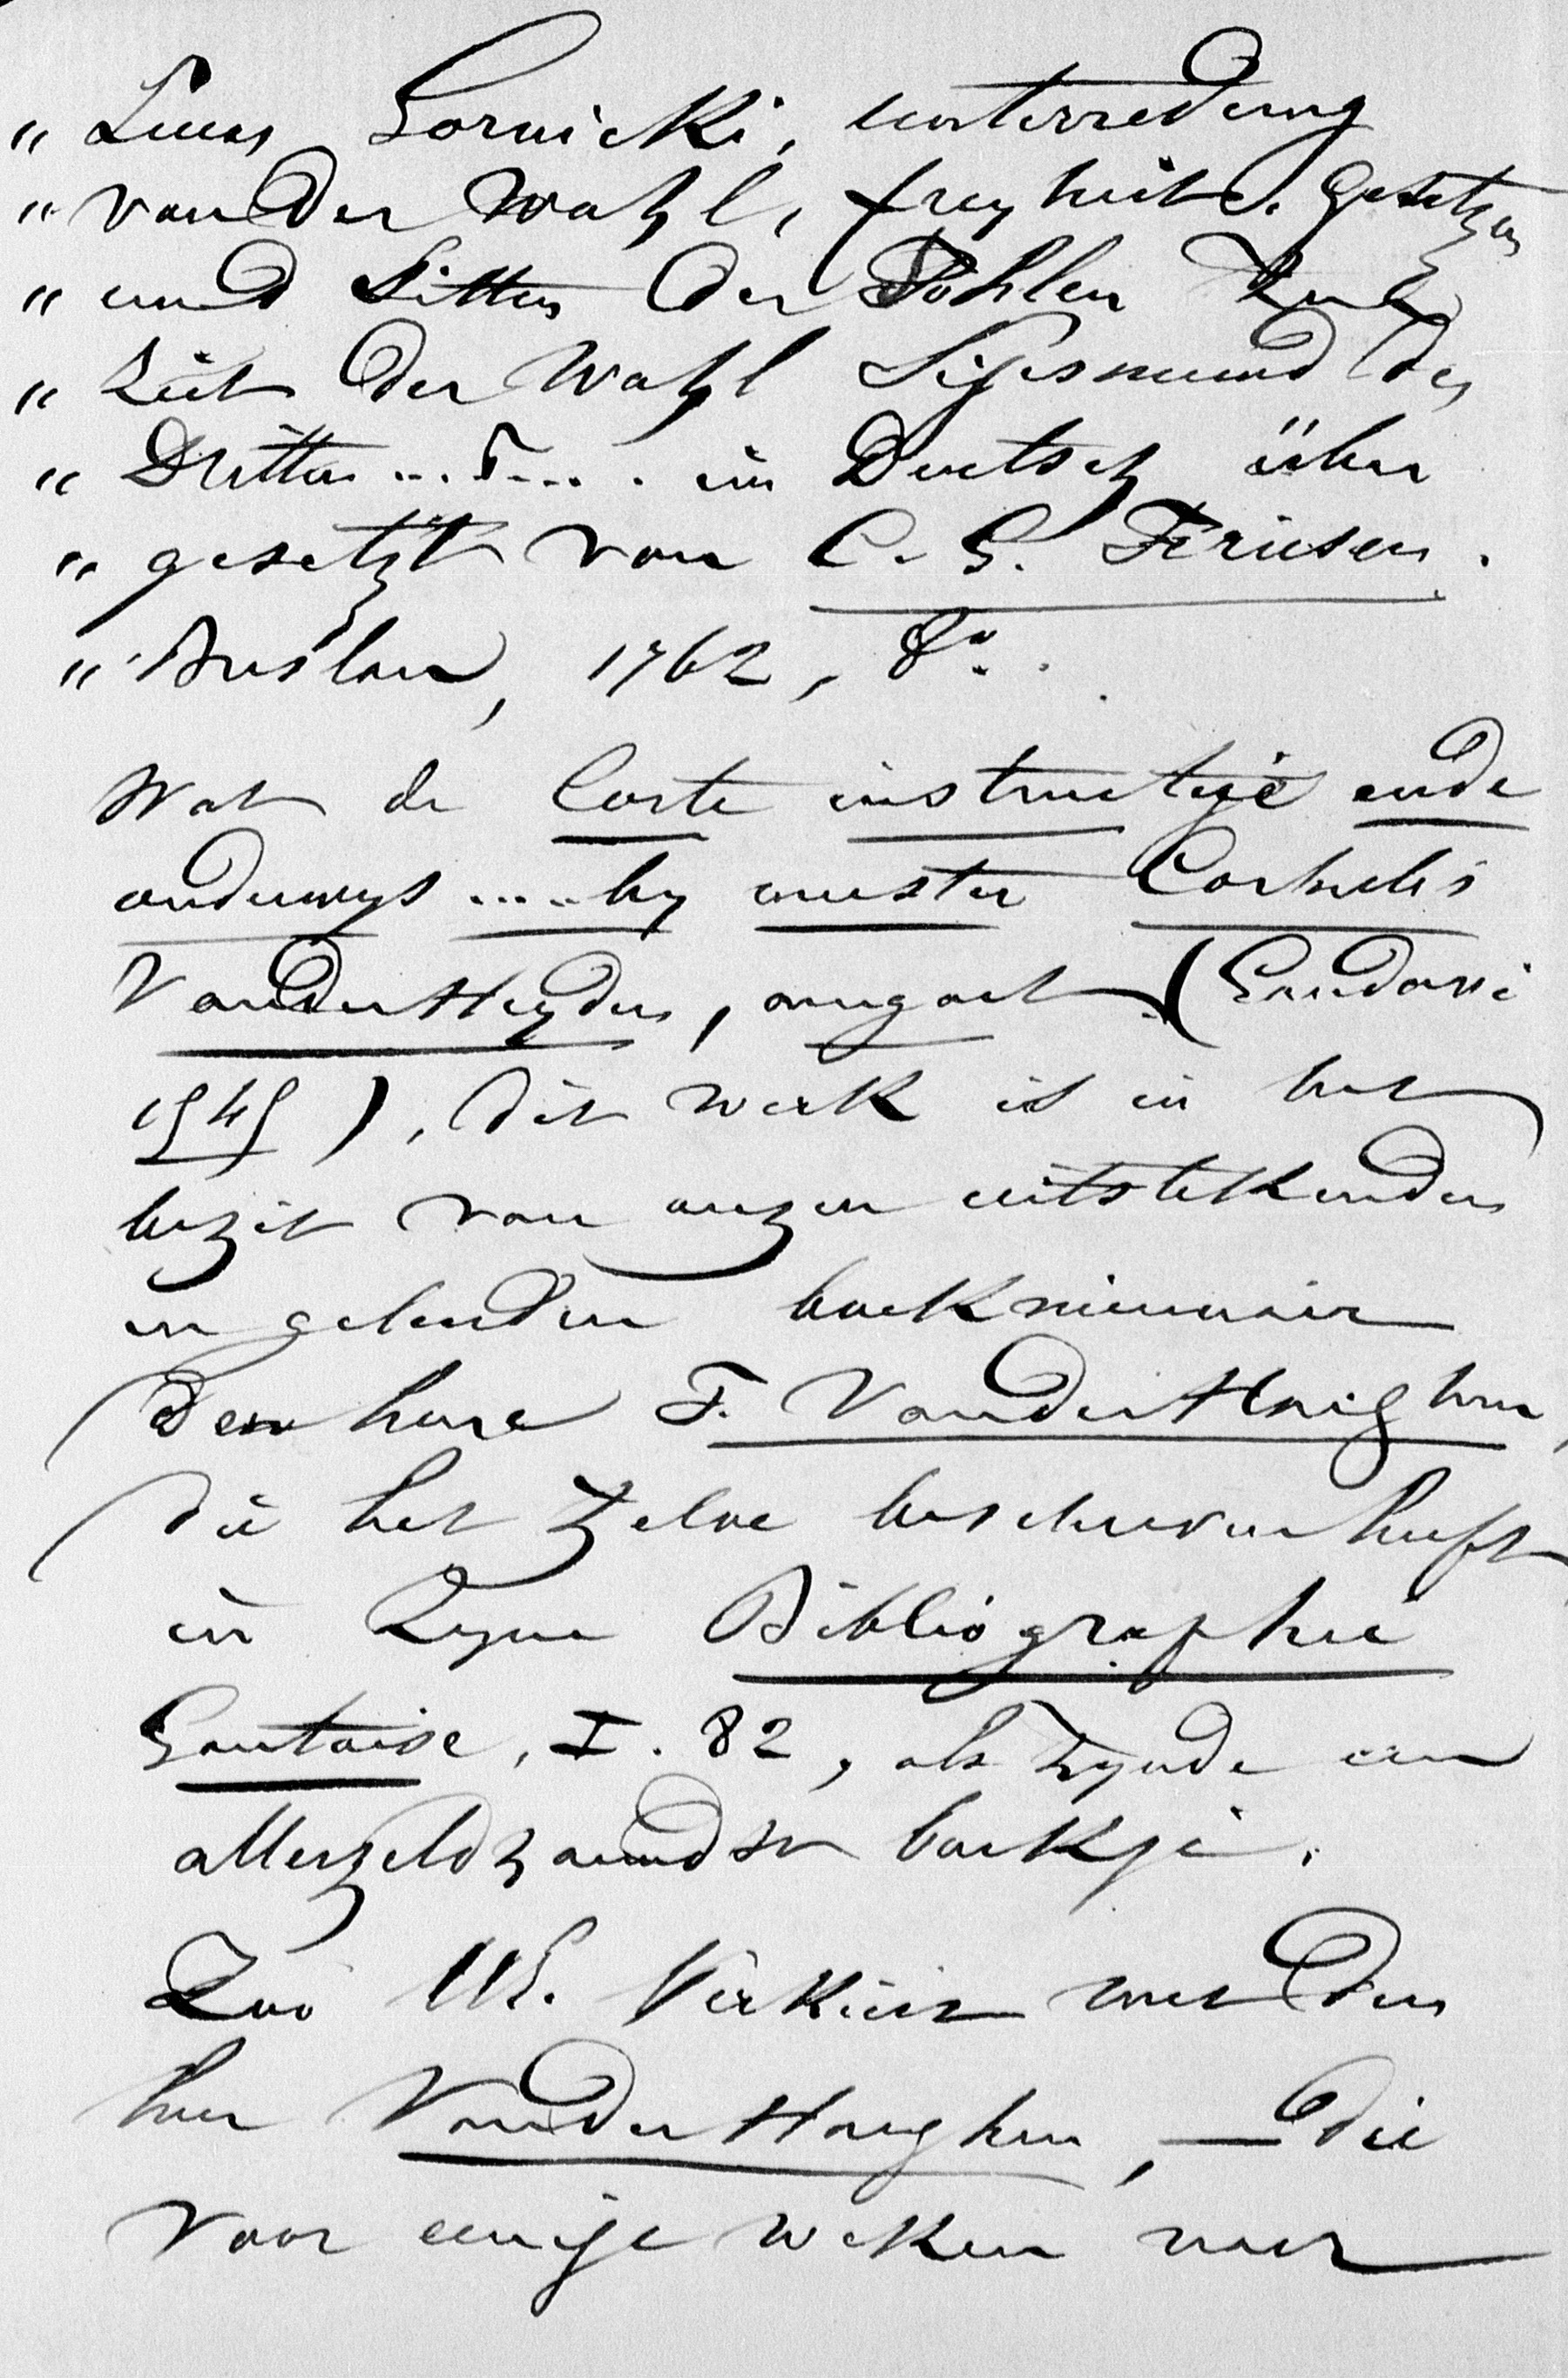 „ Lucas Gornicki, unterredung
„ von der Wahl, freyheit. Gesetzen
„ und Sitten der Pohlen zur
„ Zeit der Wahl Sigismund des
„ Dritten ........ im Deutsch über
„ gesetzt von C. G. Friesen.
„ Breslau, 1762, 8°.
Wat de Corte instructije ende
onderwys ..... by meester Cornelis
VanderHeyden, angaet (Gandavi
1545), dit werk is in het
bezit van onzen uitstekenden
en geleerden boekminnair
den heere F. VanderHaighen,
die het zelve beschreven heeft
in zyne Bibliographie
Gantoise, I. 82, als zynde een
allerzeldzaamdst boekje.
Zoo UE. Verkiest met den
heer VanderHaeghen, — die
voor eenige weken naer